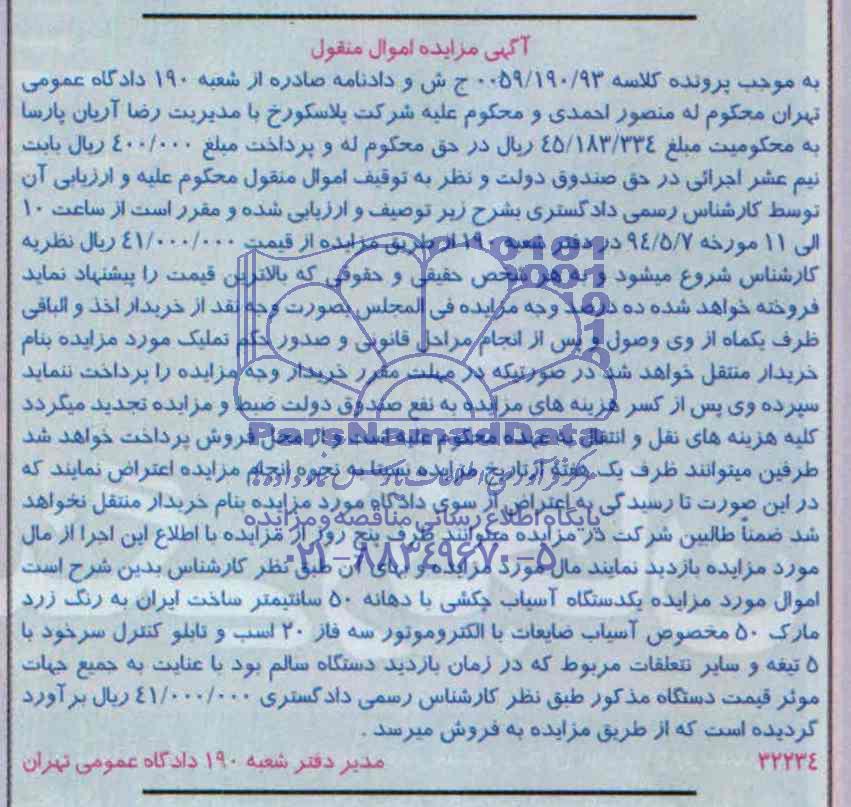 آگهی مزایده اموال منقول
به موجب پرونده کلاسه ۰۰۵۹/۱۹۰/۹۳ ج ش و دادنامه صادره از شعبه ۱۹۰ دادگاه عمومی
تهران محکوم له منصور احمدی و محکوم علیه شرکت پلاسکورخ با مدیریت رضا آریان پارسا
به محکومیت مبلغ ٤٥/۱۸۳/۳۳٤ ریال در حق محکوم له و پرداخت مبلغ ٤۰۰/۰۰۰ ریال بابت
نیم عشر اجرائی در حق صندوق دولت و نظر به توقیف اموال منقول محکوم علیه و ارزیابی آن
توسط کارشناس رسمی دادگستری بشرح زیر توصیف و ارزیابی شده و مقرر است از ساعت ۱۰
الی ۱۱ مورخه ۹٤/٥/۷ در دفتر شعبه ۱۹۰ از طریق مزایده از قیمت ٤۱/۰۰۰/۰۰۰ ریال نظریه
کارشناس شروع میشود و به هر شخص حقیقی و حقوقی که بالاترین قیمت را پیشنهاد نماید
فروخته خواهد شده ده درصد وجه مزایده فی المجلس بصورت وجه نقد از خریدار اخذ و الباقی
ظرف یکماه از وی وصول و پس از انجام مراحل قانونی و صدور حکم تملیک مورد مزایده بنام
خریدار منتقل خواهد شد در صورتیکه در مهلت مقرر خریدار وجه مزایده را پرداخت ننماید
سپرده وی پس از کسر هزینه های مزایده به نفع صندوق دولت ضبط و مزایده تجدید میگردد
کلیه هزینه های نقل و انتقال به عهده محکوم علیه است و از محل فروش پرداخت خواهد شد
طرفین میتوانند ظرف یک هفته از تاریخ مزایده نسبت به نحوه انجام مزایده اعتراض نمایند که
در این صورت تا رسیدگی به اعتراض از سوی دادگاه مورد مزایده بنام خریدار منتقل نخواهد
شد ضمناً طالبین شرکت در مزایده میتوانند ظرف پنج روز از مزایده با اطلاع این اجرا از مال
مورد مزایده بازدید نمایند مال مورد مزایده و بهای آن طبق نظر کارشناس بدین شرح است
اموال مورد مزایده یکدستگاه آسیاب چکشی با دهانه ۵۰ سانتیمتر ساخت ایران به رنگ زرد
مارک ۵۰ مخصوص آسیاب ضایعات با الکتروموتور سه فاز ۲۰ اسب و تابلو کنترل سرخود با
۵ تیغه و سایر تتعلقات مربوط که در زمان بازدید دستگاه سالم بود با عنایت به جمیع جهات
موثر قیمت دستگاه مذکور طبق نظر کارشناس رسمی دادگستری ٤۱/۰۰۰/۰۰۰ ریال برآورد
گردیده است که از طریق مزایده به فروش میرسد .
۳۲۲۳٤ مدیر دفتر شعبه ۱۹۰ دادگاه عمومی تهران
ParsNamadData
پایگاه اطلاع رسانی مناقصه و مزایده
۰۲۱-۸۸۳٤۹٦۷۰-۵